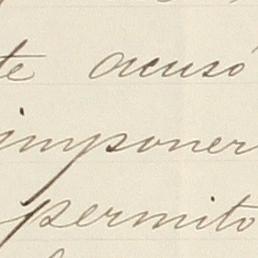 te acusó
imponer
permito